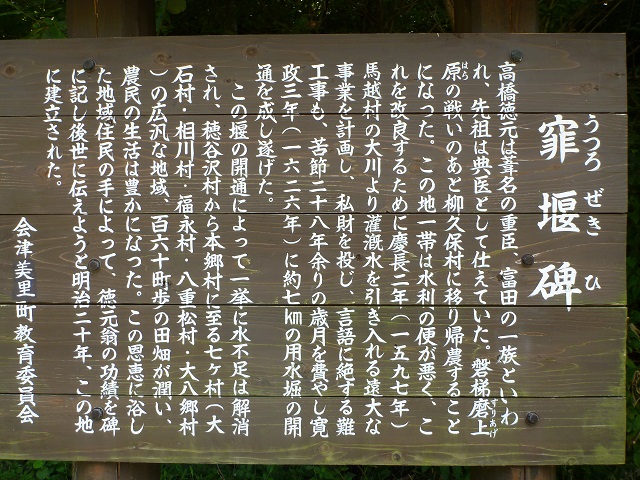 うつろ ぜき ひ
窪堰碑
高橋徳元は葦名の重臣、富田の一族といわ
れ、先祖は典医として仕えていた。磐梯磨上
すりあげ
原の戦いのあと柳久保村に移り帰農すること
はら
になった。この地一帯は水利の便が悪く、こ
れを改良するために慶長二年(一五九七年)
馬越村の大川より灌漑水を引き入れる遠大な
事業を計画し、私財を投じ、言語に絶する難
工事も、苦節二十八年余りの歳月を費やし寛
政三年(一六二六年)に約七㎞の用水堀の開
通を成し遂げた。
この堰の開通によって一挙に水不足は解消
され、穂谷沢村から本郷村に至る七ヶ村(大
石村・相川村・福永村・八重松村・大八郷村
)の広汎な地域、百六十町歩の田畑が潤い、
農民の生活は豊かになった。この恩恵に浴し
た地域住民の手によって、徳元翁の功績を碑
に記し後世に伝えようと明治二十年、この地
に建立された。
会津美里町教育委員会